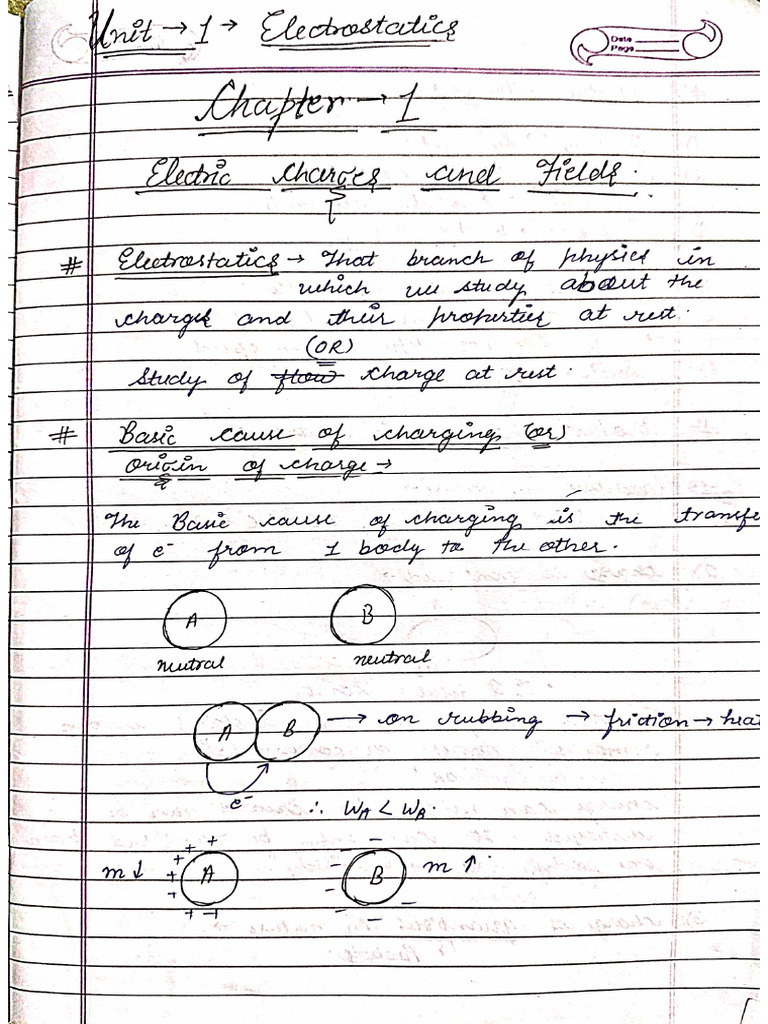 Unit → 1 → Electrostatics
Date
Page
Chapter → 1
Electric charges and Fields.
# Electrostatics → That branch of physics in
which we study about the
charges and their properties at rest.
(OR)
Study of flow charge at rest.
# Basic cause of charging (or)
origin of charge →
The Basic cause of charging is the transfe
of e⁻ from 1 body to the other.
A B
neutral neutral
A B → on rubbing → friction → heat
e⁻ ∴ W_A < W_B.
m ↓ + + + + + + + A + + - - - - B - - - m ↑